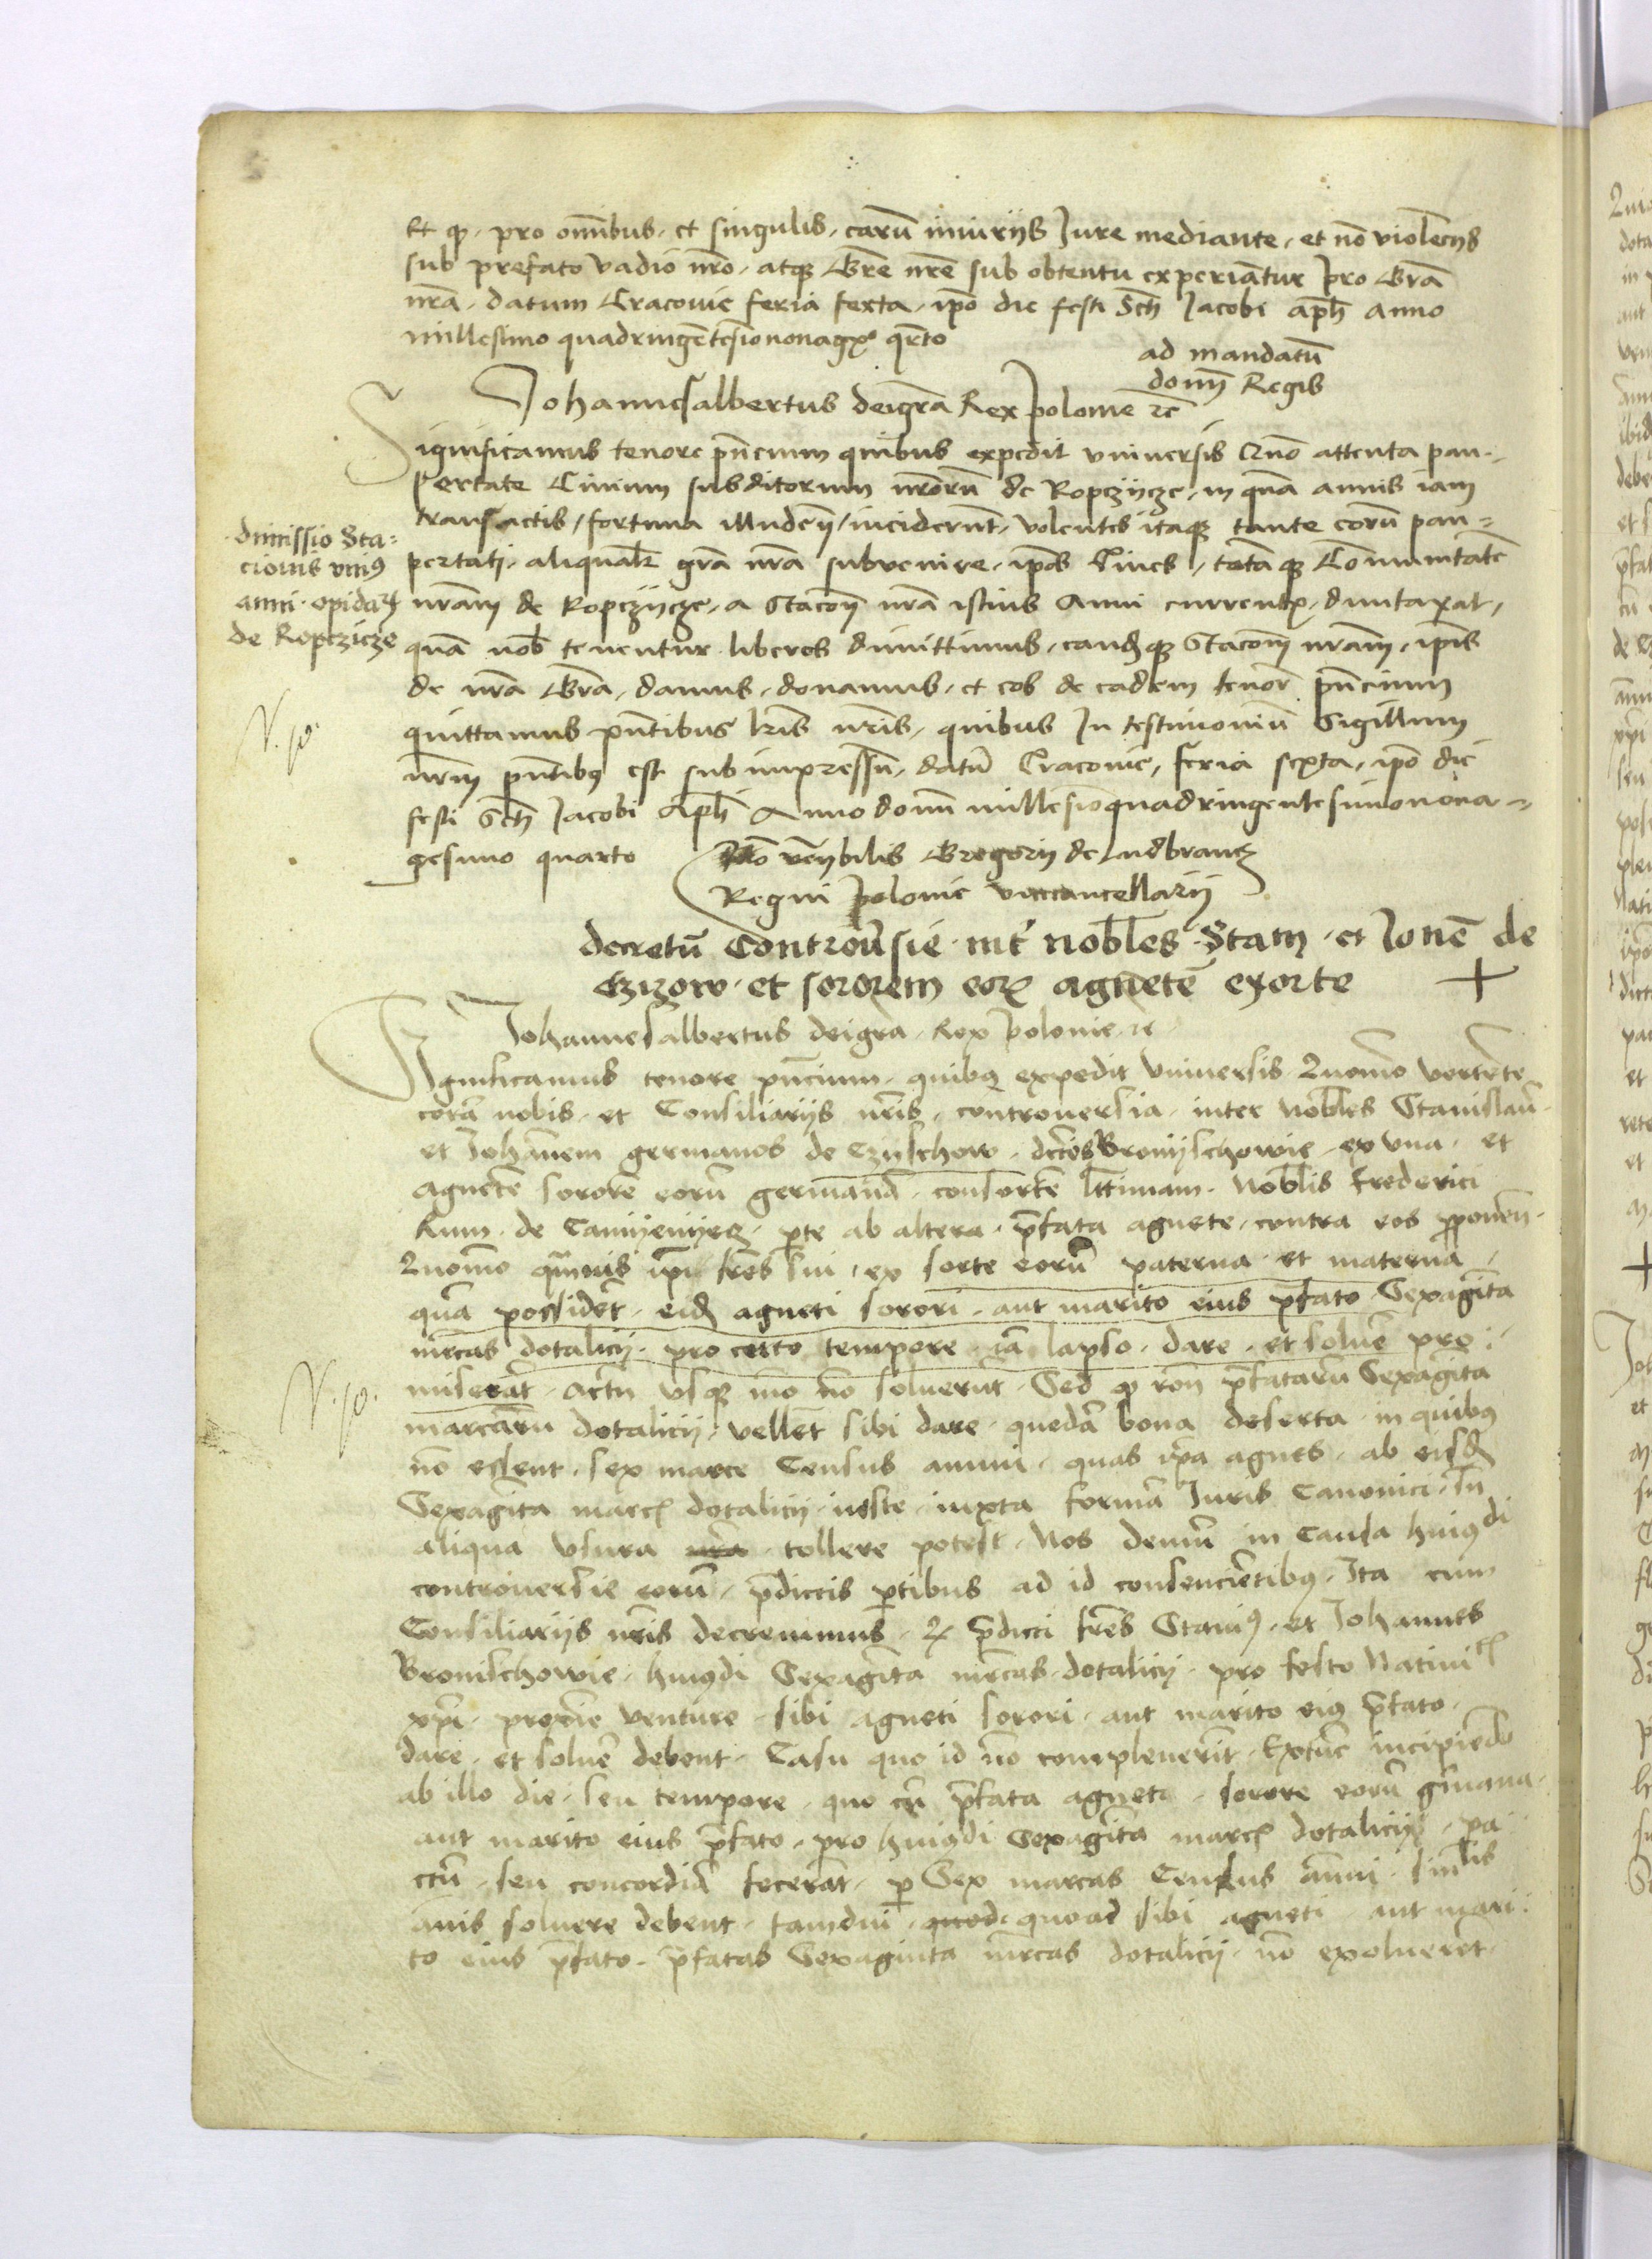 Et q pro omibus et singulis earu iniuriis Jure mediante et no violencys
sub prefato vadio nro atq Gre nre sub obtentu experiatur pro Gra
nra datum Cracovie feria sexta ipo die festi Scti Jacobi aph Anno
millesimo quadringetesiononagº qrto
ad mandatu
domny Regis
Johannesalbertus deigra Rex polonie rc
Significamus tenore pncium quibus expedit universis Quo attenta pau-
pertate Civium subditorum nroru de Ropczycze in qua annis iam
transactis fortuna illudeny inciderunt volentes itaq tante coru pau=
pertati aliqualr gra nra subvenire ipos Cives totaq Comunitate
nram de Ropczycze a stacony nra istius Anni currentis duntaxat
qua nob tenentur liberos dimittimus eandq stacom nram ipis
de nra Gra damus donamus et eos de eadem tenor pncium
quittamus pntibus lris nris quibus In testimoniu Sigillum
nrm pntibus est subimpressu datu Cracovie feria sexta ipo die
festi Scti Jacobi Aph Anno domi millesioquadringentesimonona=
gesimo quarto
Rlo venybilis Gregorii de Ludbrancz
Regni polonie vicecancellarij
dimissio Sta=
cionis unius
anni opidarz
de Ropczicze
decretu Controusie int nobles Stam et Jone de
Czizow et sororem eorz agnete exorte +
Johannesalbertus deigra Rex polonie rc
Significamus tenore pncium quibus expedit Universis Quomo vertete
cora nobis et Consiliariis nris controversia inter nobles Stanislau
et Johannem germanos de Czijschow dctos Bronijschowie ex una et
agnete sorore eoru germana consorte lttimam Noblis Frederici
Kum de pte ab altera pfata agnete contra eos pponen
Quomo qmvis ipi fres sui ex sorte eoru paterna et materna
qua possidet eid agneti sorori aut marito eius pfato Sexaginta
mrcas dotalicij pro certo tempore ia lapso dare et solve pro:
miserat Actu usq mo no soluerut Sed p ron pfataru Sexaginta
marcaru dotalicij vellet sibi dare queda bona deserta in quibus
no essent sex marce Census annui quas ipa agnes ab eisd
Sexaginta marc dotalicij iuste iuxta forma Juris Canonici sn
aliqua usura tollere potest Nos demu in Causa huiusdi
controversie eoru pdictis ptibus ad id consencietibus Ita cum
Consiliariis nris decrevimus q pdicti fres Stanius et Johannes
Bronischowie huiusdi Sexaginta mrcas dotalicij pro festo Nativitis
xpi proxie venture sibi agneti sorori aut marito eius pfato
dare et solve debent Casu quo id no compleverit Extuc incipiedo
ab illo die seu tempore quo cu pfata agnete sorore eoru gmana
aut marito eius pfato pro huiusdi Sexaginta marc dotalicij pa
ctu seu concordia fecerat p Sex marcas Census annui singlis
annis solvere debent tamdiu quode quoad sibi agneti aut mari:
to eius pfato pfatas Sexaginta mrcas dotalicij no exolveret